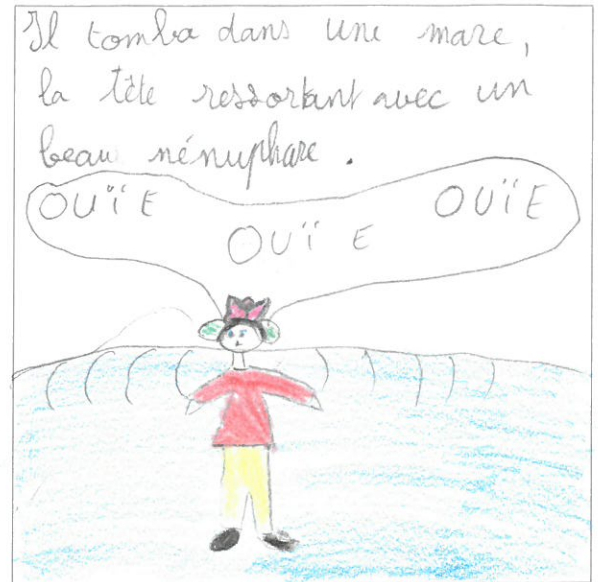 Il tomba dans une mare,
la tête ressortant avec un
beau nénuphare.
OUÏE OUÏE OUÏE